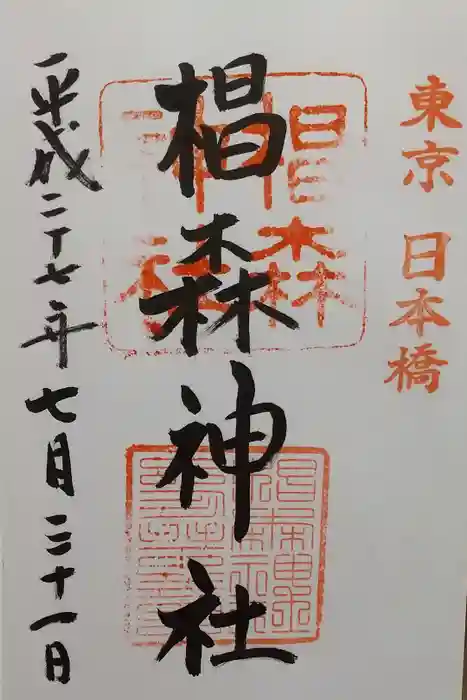 東京 日本橋
椙森神社
平成二十七年七月二十一日